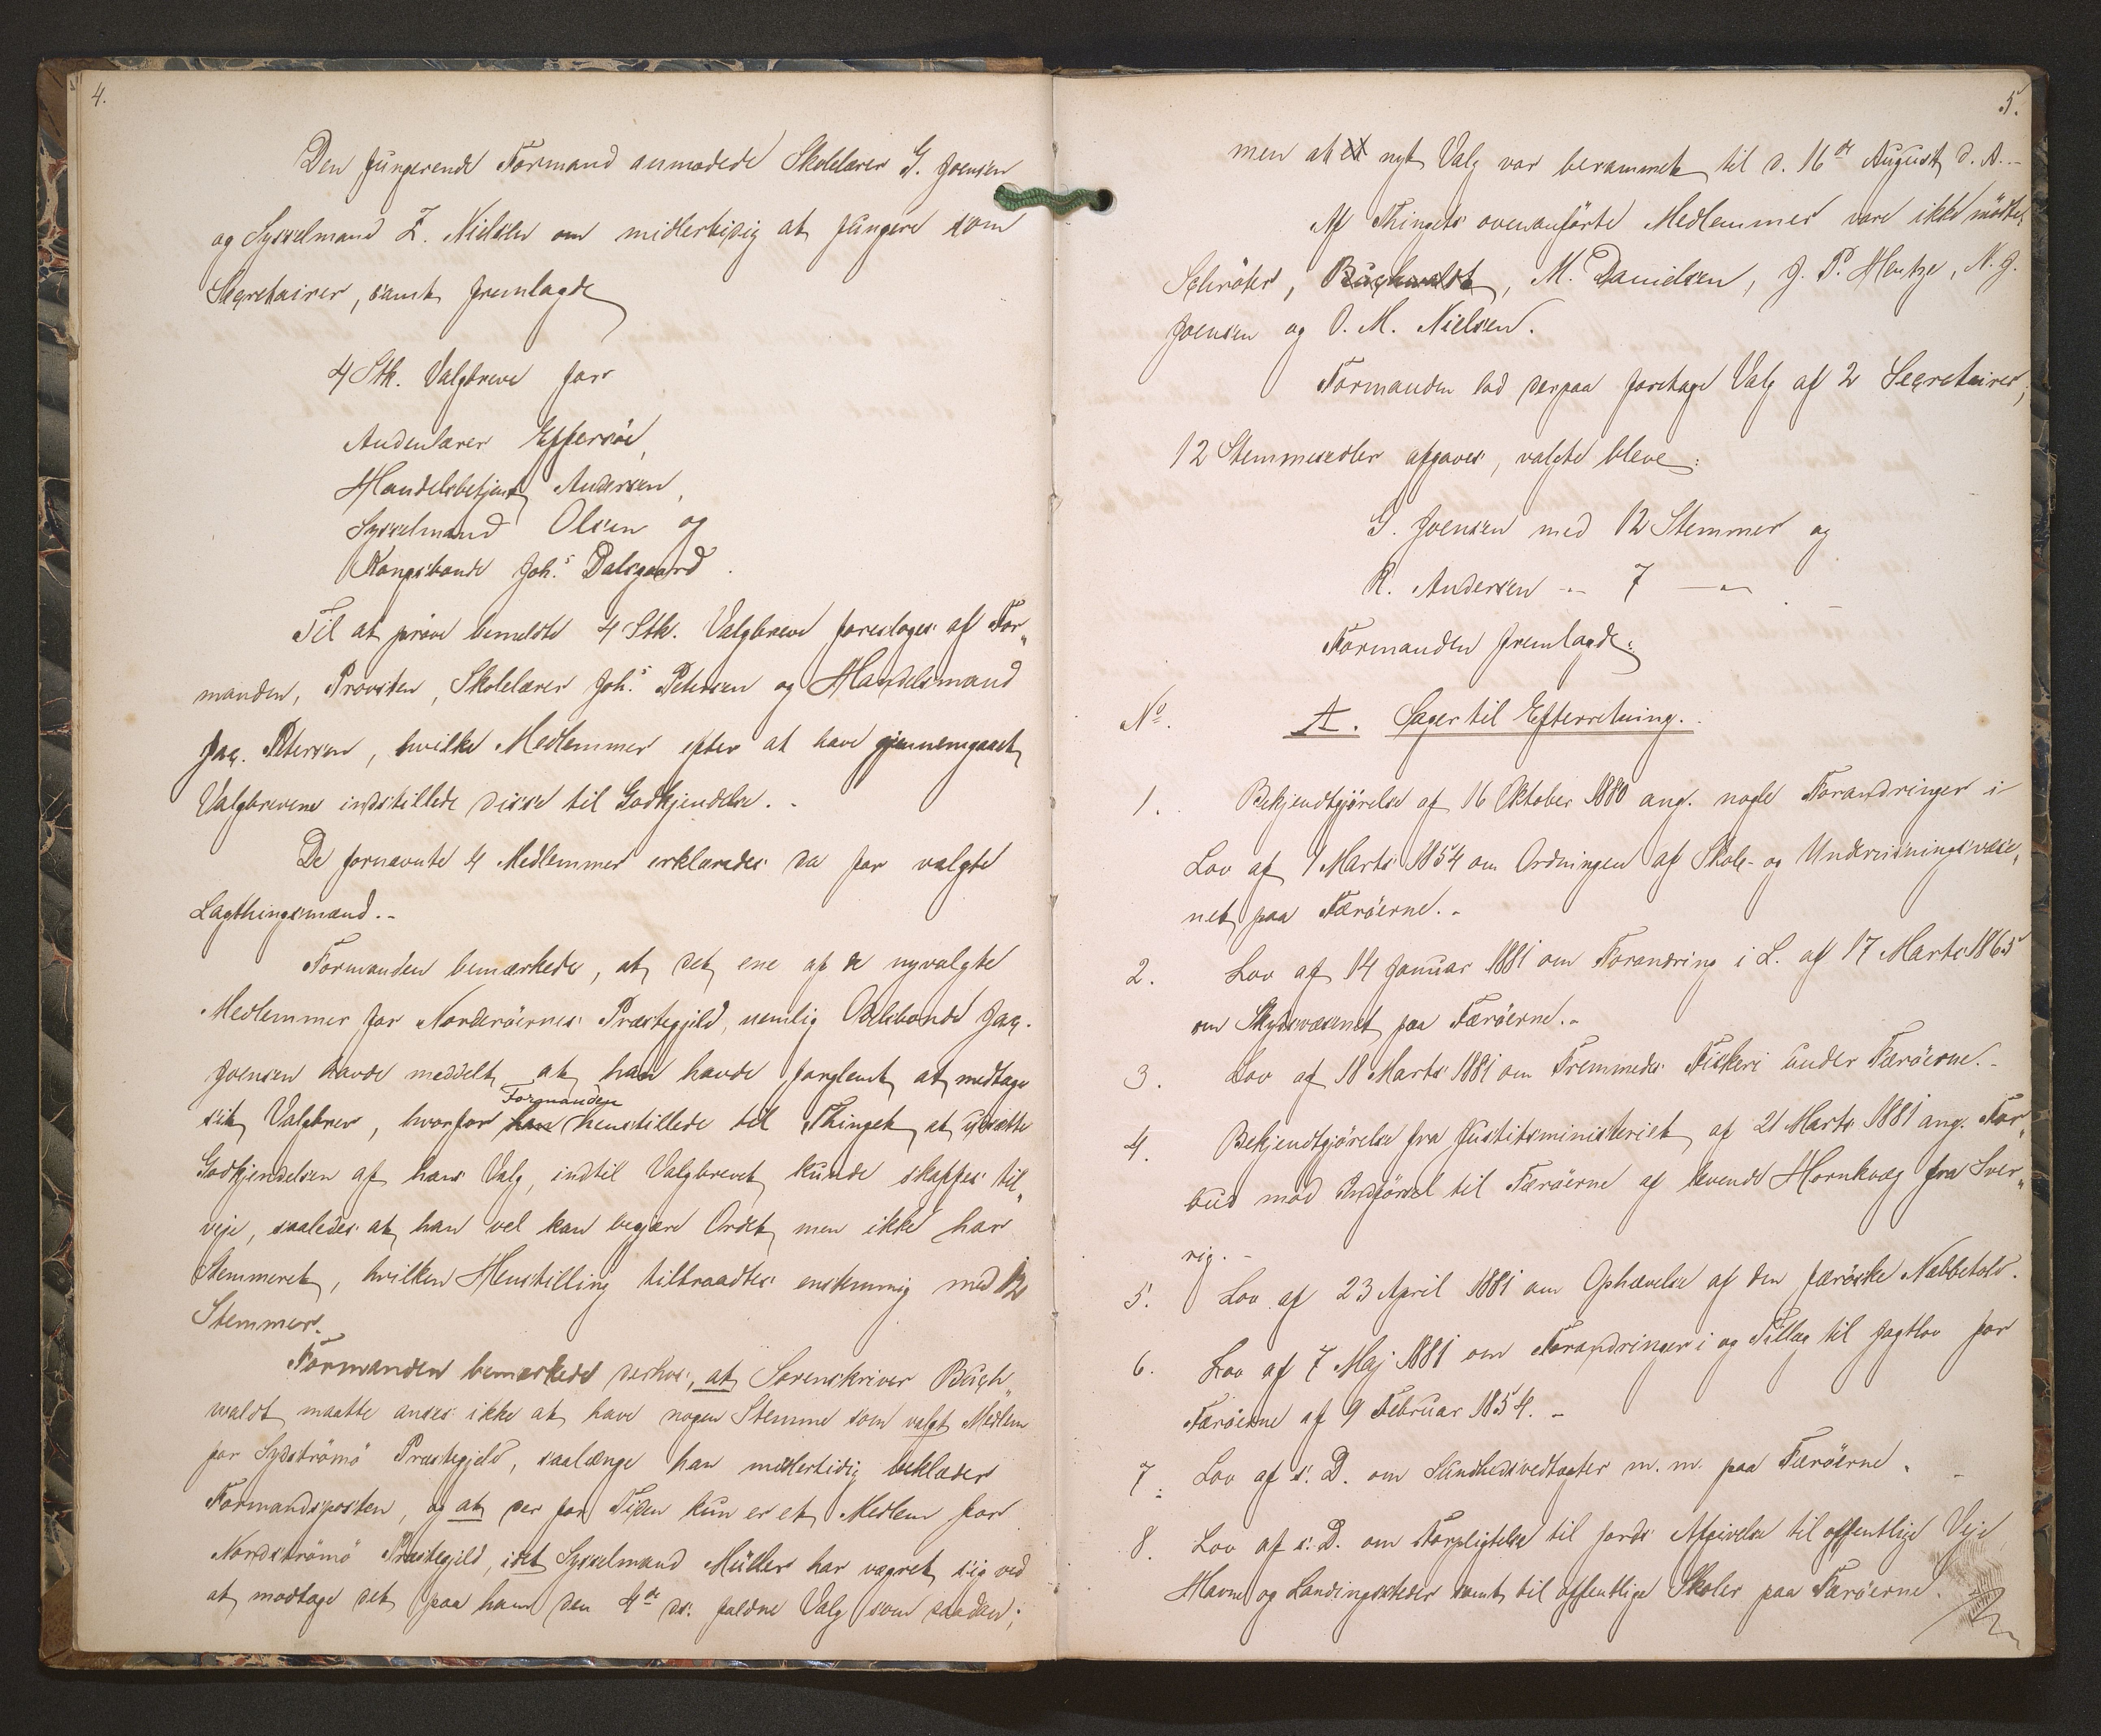 4.
Den fungerende Formand anmodede Skolelærer G. Joensen
og Sysselmand Z. Nielsen om midlertidig at fungere som
Secretairer, samt fremlagde
4 Stk. Valgbreve for
Andenlærer Effersöe,
Handelsbetjent Andersen,
Sysselmand Olsen og
Kongsbonde Joh.s Dalsgaard.
Til at pröve bemeldte 4 Stk. Valgbreve foresloges af For„
manden, Provsten, Skolelærer Joh.s Petersen og Handelsmand
Jac. Petersen, hvilke Medlemmer efter at have gjennemgaaet
Valgbrevene indstillede disse til Godkjendelse. -
De fornævnte 4 Medlemmer erklæredes da for valgte
Lagthingsmænd. -
Formanden bemærkede, at det ene af de nyvalgte
Medlemmer for Norderöernes Præstegjeld, nemlig Odelsbonde Jac.
Joensen havde meddelt at han havde forglemt at medtage
Formanden
sit Valgbrev, hvorfor han henstillede til Thinget at udsætte
Godkjendelsen af hans Valg, indtil Valgbrevet kunde skaffes til„
veje, saaledes at han vel kan begjære Ordet men ikke har
Stemmeret, hvilken Henstilling tiltraadtes enstemmig med 12
Stemmer.
Formanden bemærkede derhos, at Sorenskriver Buch„
waldt maatte anses ikke at have nogen Stemme som valgt Medlem
for Sydströmö Præstegjeld, saalænge han midlertidig beklæder
Formandsposten, og at der for Tiden kun er et Medlem for
Nordströmö Præstegjeld, idet Sysselmand Müller har vægret sig ved
at modtage det paa ham den 4de ds. faldne Valg som saadan;
5.
men at et nyt Valg var berammet til d. 16de August d. A. -
Af Thingets ovenanförte Medlemmer vare ikke mödte:
Schröter, Buchwaldt, M. Danielsen, J. P. Hentze, N. J.
Joensen og O. M. Nielsen.
Formanden lod derpaa foretage Valg af 2 Secretairer,
12 Stemmesedler afgaves, valgte bleve:
G. Joensen med 12 Stemmer og
R. Andersen -"- 7 -"- . -
Formanden fremlagde:
No. A. Sager til Efterretning.
1. Bekjendtgjörelse af 16 Oktober 1880 ang. nogle Forandringer i
Lov af 1 Marts 1854 om Ordningen af Skole- og Undervisningsvæse„
net paa Færöerne. -
2. Lov af 14 Januar 1881 om Forandring i L. af 17 Marts 1865
om Skydsvæsenet paa Færöerne. -
3. Lov af 18 Marts 1881 om Fremmedes Fiskeri under Færöerne. -
4. Bekjendtgjörelse fra Justitsministeriet af 21 Marts 1881 ang. For„
bud mod Indförsel til Færöerne af levende Hornkvæg fra Sver„
rig. -
5. Lov af 23 April 1881 om Ophævelse af den færöiske Næbbetold.
6. Lov af 7 Maj 1881 om Forandringer i og Tillæg til Jagtlov for
Færöerne af 9 Februar 1854. -
7. Lov af s. D. om Sundhedsvedtægter m. m. paa Færöerne. -
8. Lov af s. D. om Forpligtelse til Jords Afgivelse til offentlige Veje
Havne og Landingssteder samt til offentlige Skoler paa Færöerne.